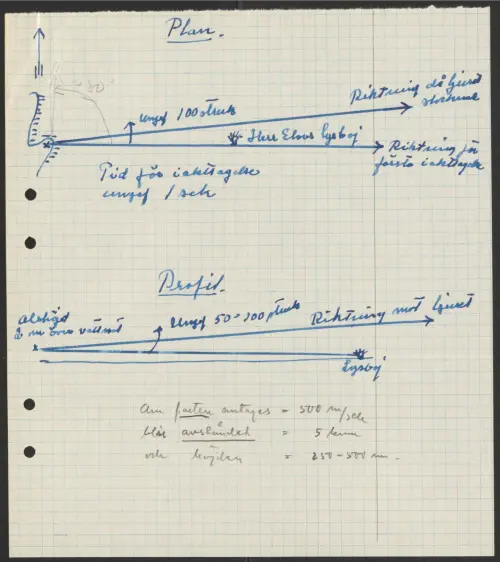 Plan.
80°
ungef 100 streck
Riktning då ljuset
slocknade
Herr Elvos lysboj
Riktning för
första iakttagelse
Tid för iakttagelse
ungef 1 sek
Profil.
ögonhöjd
2 m över vattnet
Ungef 50-100 streck
Riktning mot ljuset
Lysboj
Om farten antages = 500 m/sek
blir avståndet = 5 km
och höjden = 250-500 m.